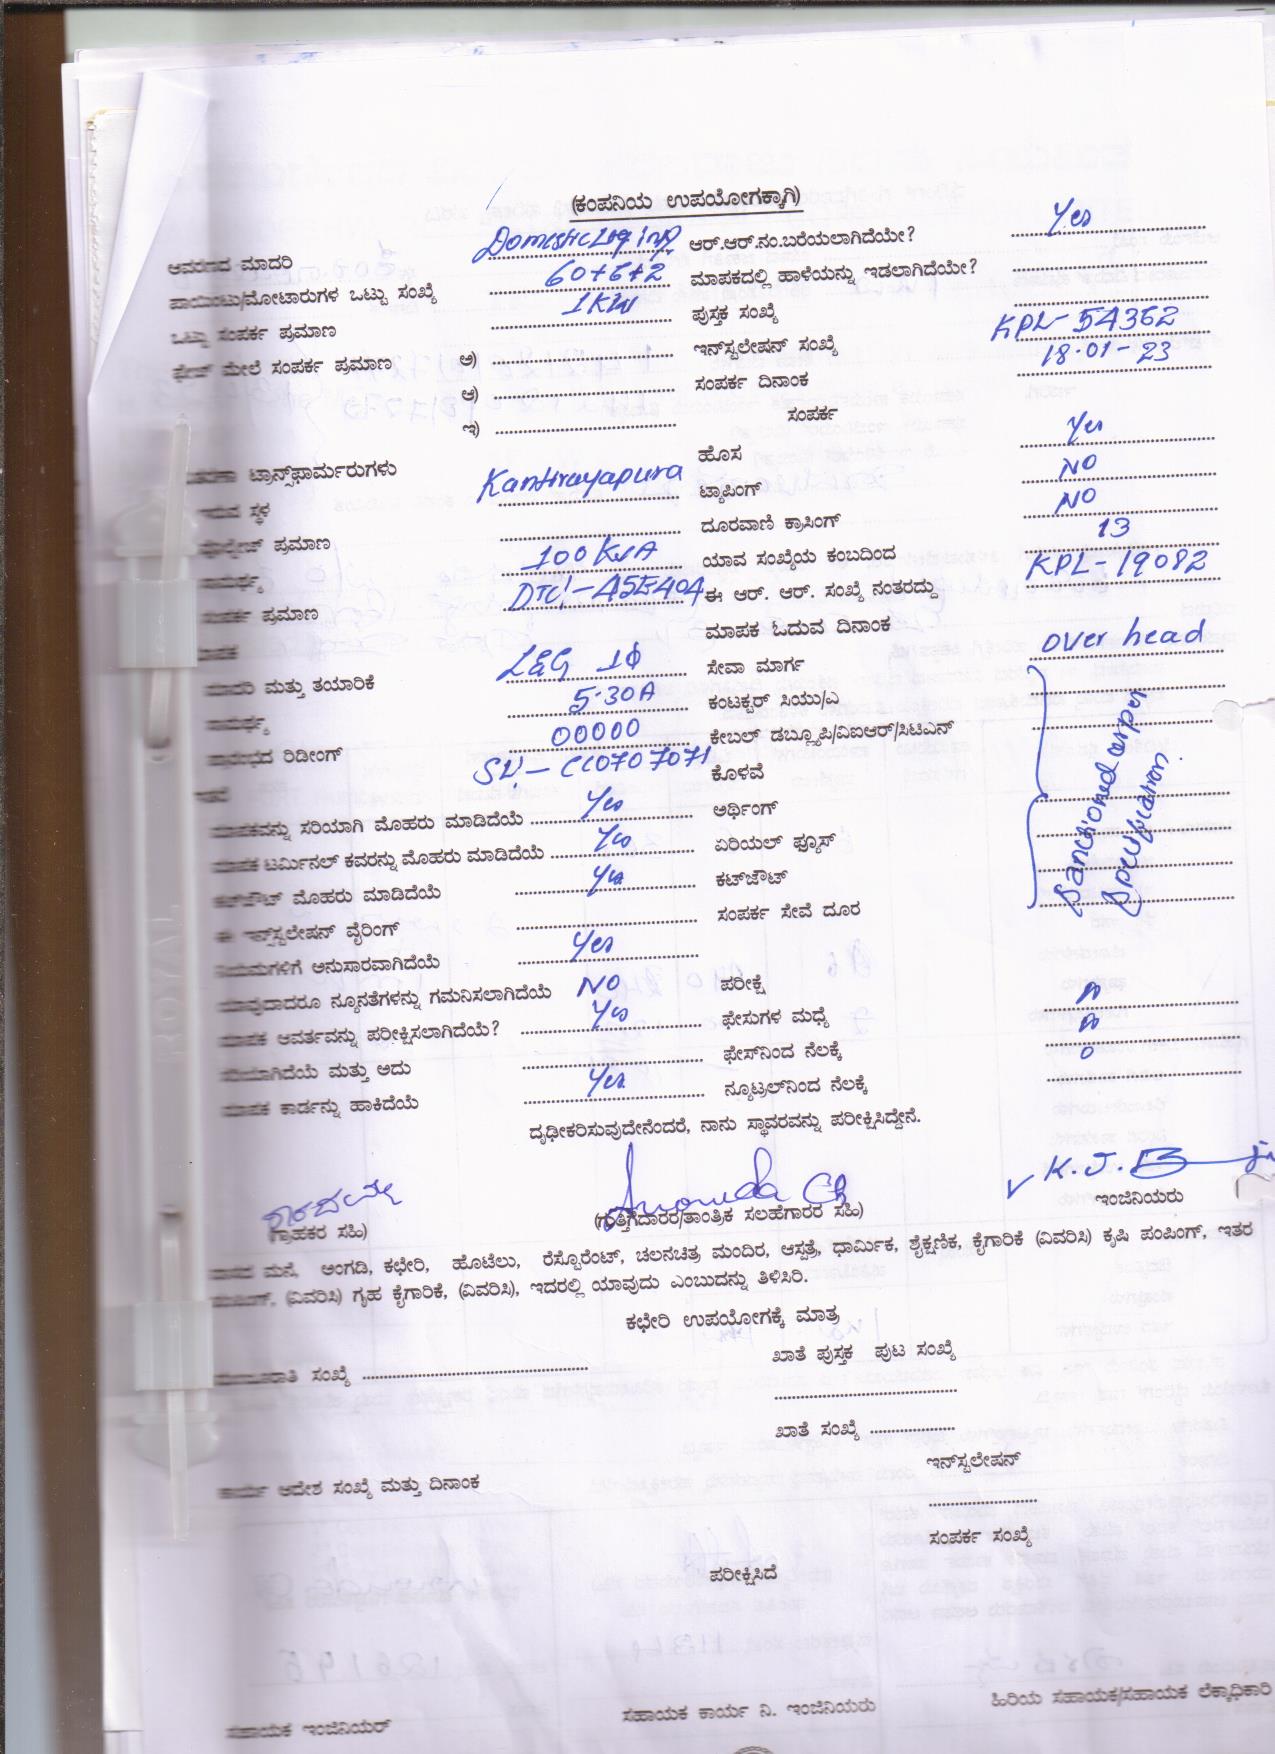 (ಕಂಪನಿಯ ಉಪಯೋಗಕ್ಕಾಗಿ)
ಆವರಣದ ಮಾದರಿ Domestic Log inp ಆರ್.ಆರ್.ನಂ.ಬರೆಯಲಾಗಿದೆಯೇ? Yes
ಪಾಯಿಂಟು/ಮೋಟಾರುಗಳ ಒಟ್ಟು ಸಂಖ್ಯೆ 60+6+2 ಮಾಪಕದಲ್ಲಿ ಹಾಳೆಯನ್ನು ಇಡಲಾಗಿದೆಯೇ?
ಒಟ್ಟು ಸಂಪರ್ಕ ಪ್ರಮಾಣ 1KW ಪುಸ್ತಕ ಸಂಖ್ಯೆ
ಫೇಜ್ ಮೇಲೆ ಸಂಪರ್ಕ ಪ್ರಮಾಣ ಅ) ಇನ್‌ಸ್ಟಲೇಷನ್ ಸಂಖ್ಯೆ KPL-54362
ಆ) ಸಂಪರ್ಕ ದಿನಾಂಕ 18-01-23
ಇ) ಸಂಪರ್ಕ
ಟ್ರಾನ್ಸ್‌ಫಾರ್ಮರುಗಳು ಹೊಸ Yes
ಇರುವ ಸ್ಥಳ Kantirayapura ಟ್ಯಾಪಿಂಗ್ NO
ವೋಲ್ಟೇಜ್ ಪ್ರಮಾಣ ದೂರವಾಣಿ ಕ್ರಾಸಿಂಗ್ NO
ಸಾಮರ್ಥ್ಯ 100 KVA ಯಾವ ಸಂಖ್ಯೆಯ ಕಂಬದಿಂದ 13
ಸಂಪರ್ಕ ಪ್ರಮಾಣ DTC!-45E404 ಈ ಆರ್. ಆರ್. ಸಂಖ್ಯೆ ನಂತರದ್ದು KPL-19082
ಮಾಪಕ ಮಾಪಕ ಓದುವ ದಿನಾಂಕ
ಮಾದರಿ ಮತ್ತು ತಯಾರಿಕೆ L&G 1ϕ ಸೇವಾ ಮಾರ್ಗ over head
ಸಾಮರ್ಥ್ಯ 5-30A ಕಂಟಕ್ಟರ್ ಸಿಯು/ಎ
ಪ್ರಾರಂಭದ ರಿಡೀಂಗ್ 00000 ಕೇಬಲ್ ಡಬ್ಲ್ಯೂಪಿ/ವಿಐಆರ್/ಸಿಟಿಎನ್
SL!- CC0707071 ಕೊಳವೆ
ಮಾಪಕವನ್ನು ಸರಿಯಾಗಿ ಮೊಹರು ಮಾಡಿದೆಯೆ Yes ಅರ್ಥಿಂಗ್
ಮಾಪಕ ಟರ್ಮಿನಲ್ ಕವರನ್ನು ಮೊಹರು ಮಾಡಿದೆಯೆ Yes ಏರಿಯಲ್ ಫ್ಯೂಸ್
ಕಟ್‌ಔಟ್ ಮೊಹರು ಮಾಡಿದೆಯೆ Yes ಕಟ್‌ಔಟ್
Sanctioned as per
Specification.
ಈ ಇನ್ಸ್‌ಸ್ಟಲೇಷನ್ ವೈರಿಂಗ್ ಸಂಪರ್ಕ ಸೇವೆ ದೂರ
ನಿಯಮಗಳಿಗೆ ಅನುಸಾರವಾಗಿದೆಯೆ Yes
ಯಾವುದಾದರೂ ನ್ಯೂನತೆಗಳನ್ನು ಗಮನಿಸಲಾಗಿದೆಯೆ NO ಪರೀಕ್ಷೆ
ಮಾಪಕ ಆವರ್ತವನ್ನು ಪರೀಕ್ಷಿಸಲಾಗಿದೆಯೆ? Yes ಫೇಸುಗಳ ಮಧ್ಯೆ
ಸರಿಯಾಗಿದೆಯೆ ಮತ್ತು ಅದು ಫೇಸ್‌ನಿಂದ ನೆಲಕ್ಕೆ
ಮಾಪಕ ಕಾರ್ಡನ್ನು ಹಾಕಿದೆಯೆ Yes. ನ್ಯೂಟ್ರಲ್‌ನಿಂದ ನೆಲಕ್ಕೆ 0
ದೃಢೀಕರಿಸುವುದೇನೆಂದರೆ, ನಾನು ಸ್ಥಾವರವನ್ನು ಪರೀಕ್ಷಿಸಿದ್ದೇನೆ.
K.J.
ಗ್ರಾಹಕರ ಸಹಿ) (ಗುತ್ತಿಗೆದಾರರ/ತಾಂತ್ರಿಕ ಸಲಹೆಗಾರರ ಸಹಿ) ಇಂಜಿನಿಯರು
ವಾಸದ ಮನೆ, ಅಂಗಡಿ, ಕಛೇರಿ, ಹೊಟೆಲು, ರೆಸ್ಟೊರೆಂಟ್, ಚಲನಚಿತ್ರ ಮಂದಿರ, ಆಸ್ಪತ್ರೆ, ಧಾರ್ಮಿಕ, ಶೈಕ್ಷಣಿಕ, ಕೈಗಾರಿಕೆ (ವಿವರಿಸಿ) ಕೃಷಿ ಪಂಪಿಂಗ್, ಇತರ
ಪಂಪಿಂಗ್, (ವಿವರಿಸಿ) ಗೃಹ ಕೈಗಾರಿಕೆ, (ವಿವರಿಸಿ), ಇದರಲ್ಲಿ ಯಾವುದು ಎಂಬುದನ್ನು ತಿಳಿಸಿರಿ.
ಕಛೇರಿ ಉಪಯೋಗಕ್ಕೆ ಮಾತ್ರ
ಮಂಜೂರಾತಿ ಸಂಖ್ಯೆ ಖಾತೆ ಪುಸ್ತಕ ಪುಟ ಸಂಖ್ಯೆ
ಖಾತೆ ಸಂಖ್ಯೆ
ಕಾರ್ಯ ಆದೇಶ ಸಂಖ್ಯೆ ಮತ್ತು ದಿನಾಂಕ ಇನ್‌ಸ್ಟಲೇಷನ್
ಸಂಪರ್ಕ ಸಂಖ್ಯೆ
ಪರೀಕ್ಷಿಸಿದೆ
ಸಹಾಯಕ ಇಂಜಿನಿಯರ್ ಸಹಾಯಕ ಕಾರ್ಯ ನಿ. ಇಂಜಿನಿಯರು ಹಿರಿಯ ಸಹಾಯಕ/ಸಹಾಯಕ ಲೆಕ್ಕಾಧಿಕಾರಿ